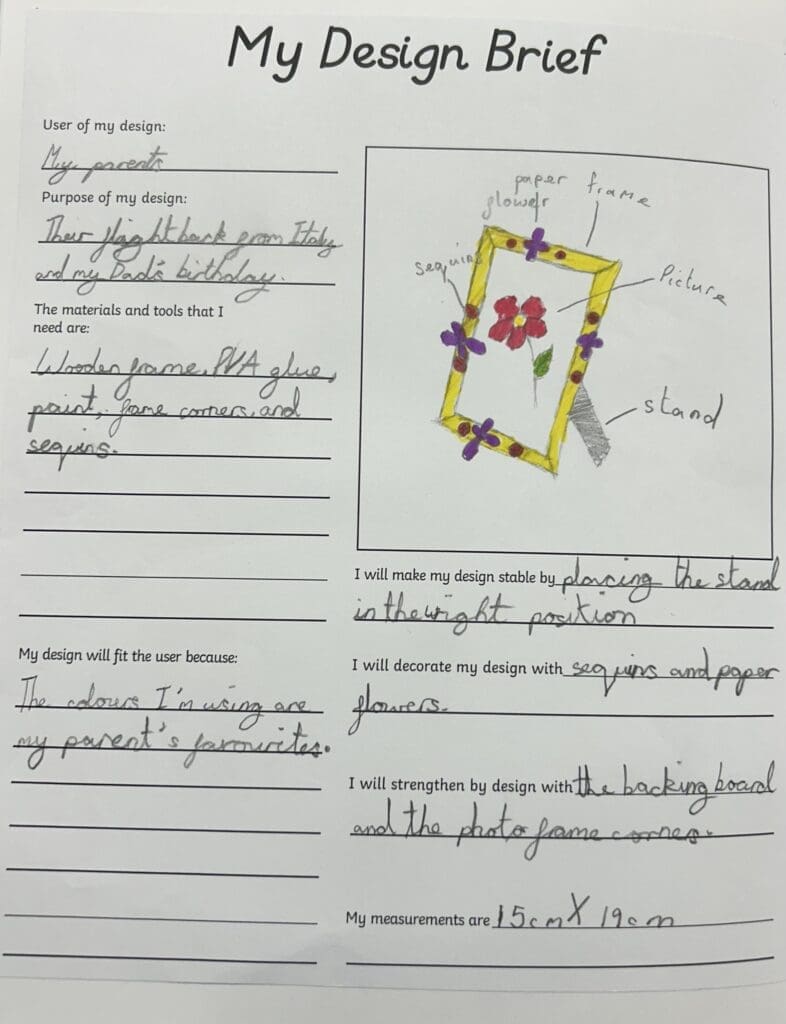 My Design Brief
User of my design:
My parents
Purpose of my design:
Their flight back from Italy
and my Dad's birthday.
The materials and tools that I
need are:
Wooden frame, PVA glue,
paint, frame corners, and
sequins.
My design will fit the user because:
The colours I'm using are
my parent's favourites.
paper
flower
frame
sequins
Picture
stand
I will make my design stable by placing the stand
in the wright position
I will decorate my design with sequins and paper
flowers.
I will strengthen by design with the backing board
and the photo frame cornes.
My measurements are 15cm X 19cm